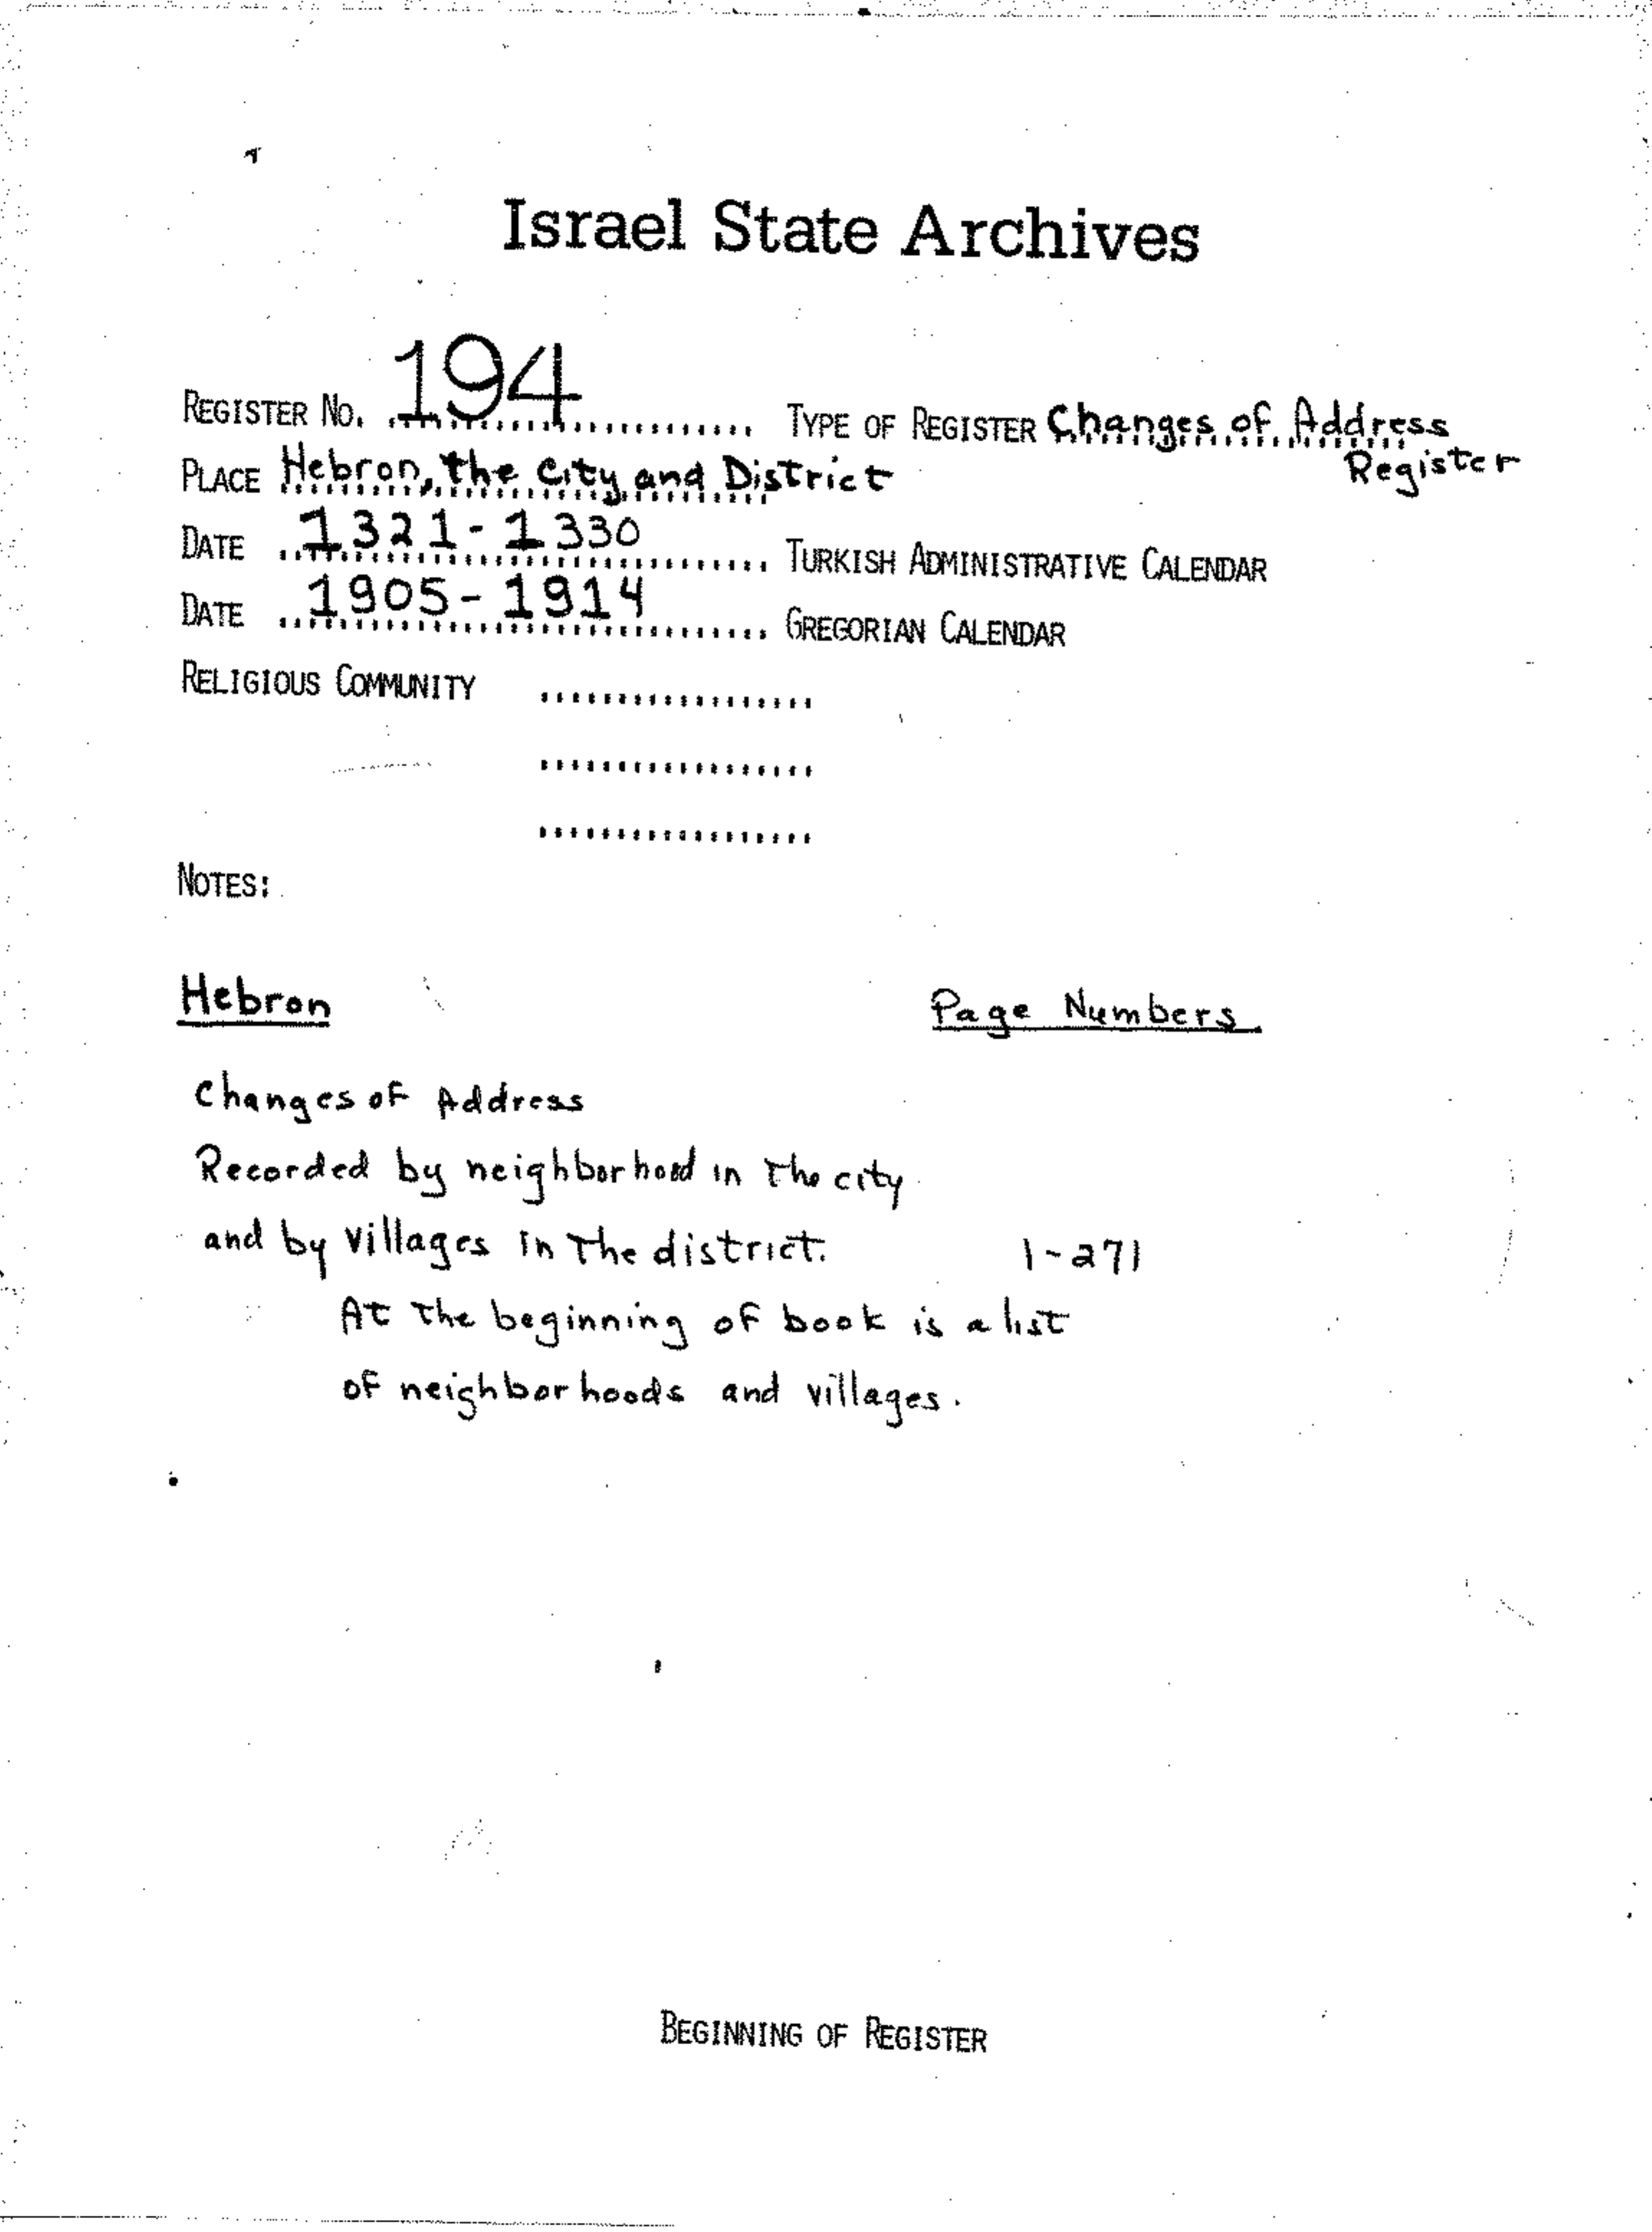 Israel State Archives
REGISTER No. 194 TYPE OF REGISTER Changes of Address
Register
PLACE Hebron, the City and District
DATE 1321-1330 TURKISH ADMINISTRATIVE CALENDAR
DATE 1905-1914 GREGORIAN CALENDAR
RELIGIOUS COMMUNITY
NOTES:
Hebron Page Numbers
Changes of Address
Recorded by neighborhood in The city
and by villages in The district. 1-271
At The beginning of book is a list
of neighborhoods and villages.
BEGINNING OF REGISTER